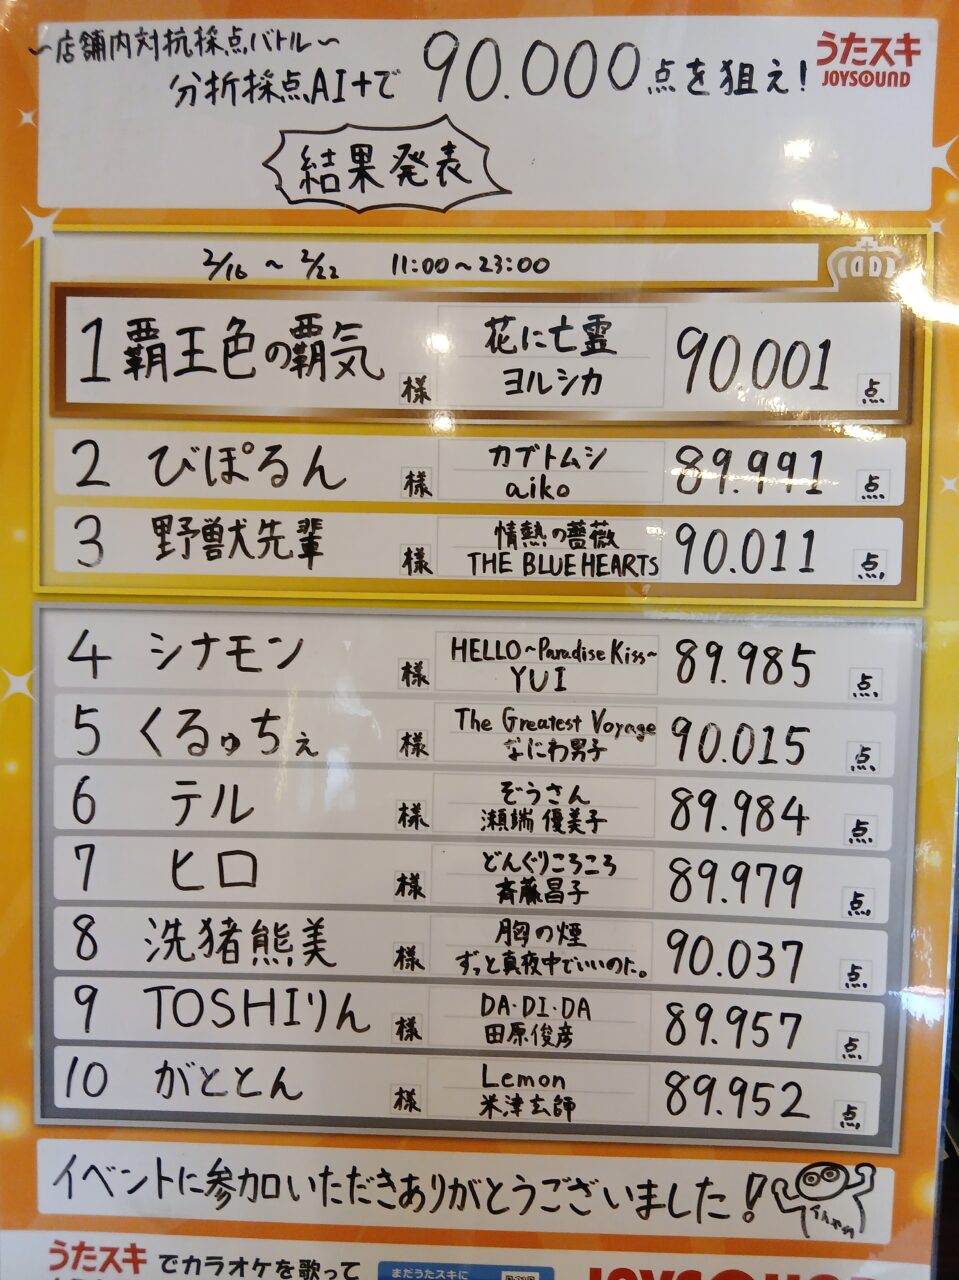 ~店舗内対抗採点バトル~
分析採点AI+で 90.000点を狙え!
うたスキ
JOYSOUND
結果発表
2/16 ~ 2/22 11:00~23:00
1 覇王色の覇気 様 花に亡霊 ヨルシカ 90.001 点
2 びぽるん 様 カブトムシ aiko 89.991 点
3 野獣先輩 様 情熱の薔薇 THE BLUE HEARTS 90.011 点
4 シナモン 様 HELLO~Paradise Kiss~ YUI 89.985 点
5 くるゅちぇ 様 The Greatest Voyage なにわ男子 90.015 点
6 テル 様 ぞうさん 瀬端 優美子 89.984 点
7 ヒロ 様 どんぐりころころ 斉藤昌子 89.979 点
8 洗猪熊美 様 胸の煙 ずっと真夜中でいいのに。 90.037 点
9 TOSHIりん 様 DA・DI・DA 田原俊彦 89.957 点
10 がととん 様 Lemon 米津玄師 89.952 点
イベントに参加いただきありがとうございました!
うたスキでカラオケを歌って
まだうたスキに
JOYSOUND